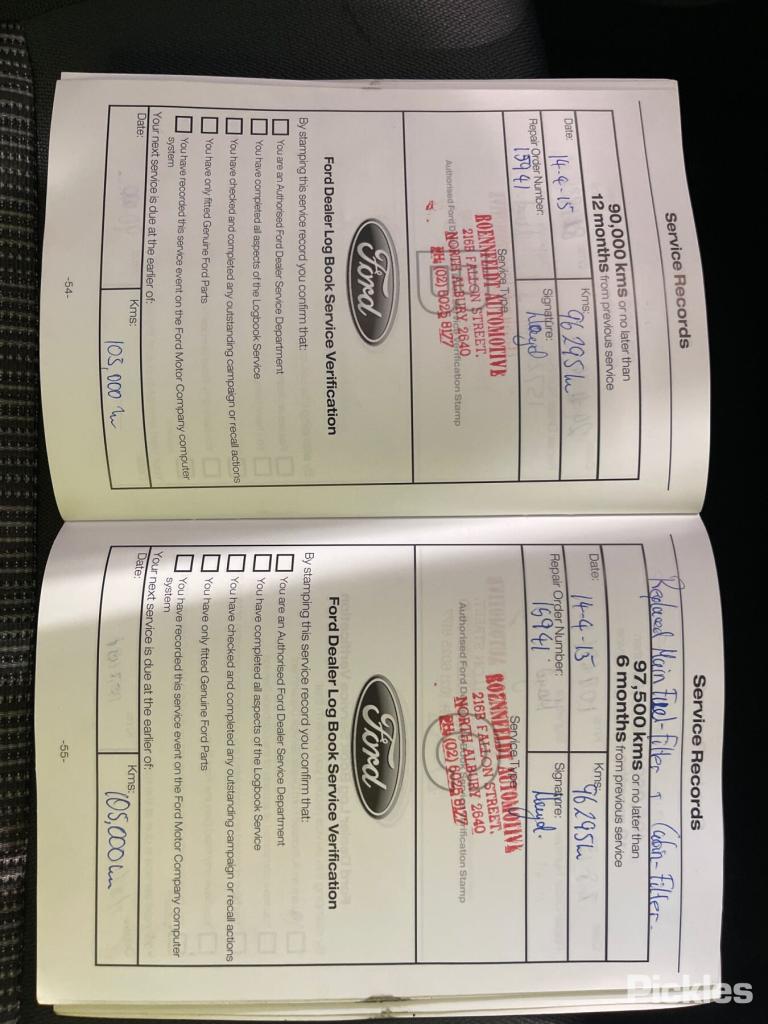 Service Records
90,000 kms or no later than
12 months from previous service
Date: 14-4-15
Kms: 96295 km
Repair Order Number: 15941
Signature:
Service Type
ROENNFELDT AUTOMOTIVE
216B FALLON STREET.
NORTH ALBURY 2640
PH (02) 6025 8177
Authorised Ford
ification Stamp
Ford
Ford Dealer Log Book Service Verification
By stamping this service record you confirm that:
You are an Authorised Ford Dealer Service Department
You have completed all aspects of the Logbook Service
You have checked and completed any outstanding campaign or recall actions
You have only fitted Genuine Ford Parts
You have recorded this service event on the Ford Motor Company computer
system
Your next service is due at the earlier of:
Date:
Kms: 105,000 km
-54-
Service Records
Replaced Main Fuel-Filter & Cabin-Filter.
97,500 kms or no later than
6 months from previous service
Date: 14-4-15
Kms: 96295 km
Repair Order Number: 15941
Signature:
Service Type
ROENNFELDT AUTOMOTIVE
216B FALLON STREET.
NORTH ALBURY 2640
PH (02) 6025 8177
Authorised Ford
ification Stamp
Ford
Ford Dealer Log Book Service Verification
By stamping this service record you confirm that:
You are an Authorised Ford Dealer Service Department
You have completed all aspects of the Logbook Service
You have checked and completed any outstanding campaign or recall actions
You have only fitted Genuine Ford Parts
You have recorded this service event on the Ford Motor Company computer
system
Your next service is due at the earlier of:
Date:
Kms: 105,000 km
-55-
Pickles